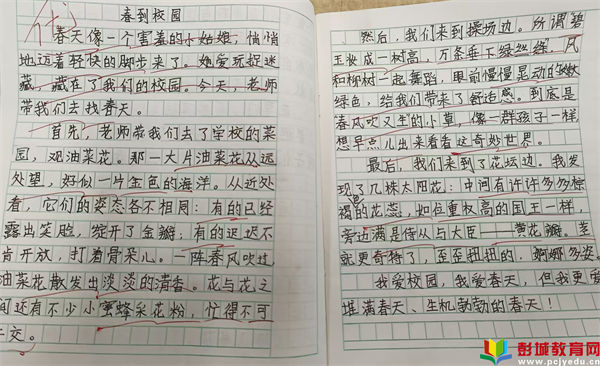 春到校园
春天像一个害羞的小姑娘，悄悄
地迈着轻快的脚步来了。她爱玩捉迷
藏，藏在了我们的校园。今天，老师
带我们去找春天。
首先，老师带我们去了学校的菜
园，观油菜花。那一大片油菜花从远
处望，好似一片金色的海洋。从近处
看，它们的姿态各不相同：有的已经
露出笑脸，绽开了金瓣，有的迟迟不
肯开放，打着骨朵儿。一阵春风吹过
油菜花散发出淡淡的清香。花与花之
间还有不少小蜜蜂采花粉，忙得不可
交。
然后，我们来到操场边。所谓碧
玉妆成一树高，万条垂下绿丝绦。风
和柳树一起舞蹈，眼前慢慢晃动的
绿色，给我们带来了舒适感。到底是
春风吹又生的小草，像一群孩子一样，
想早点儿出来看看这奇妙世界。
最后，我们来到了花坛边。我发
现了几株太阳花：中间有许许多多棕
褐的花蕊，如位重权高的国王一样，
旁边满是侍从与大臣——黄花瓣。茎
就更奇特了，歪歪扭扭的，婀娜多姿。
我爱校园，我爱春天，但我更爱
堆满春天、生机勃勃的春天！
彭城教育网
www.pcjyedu.cn